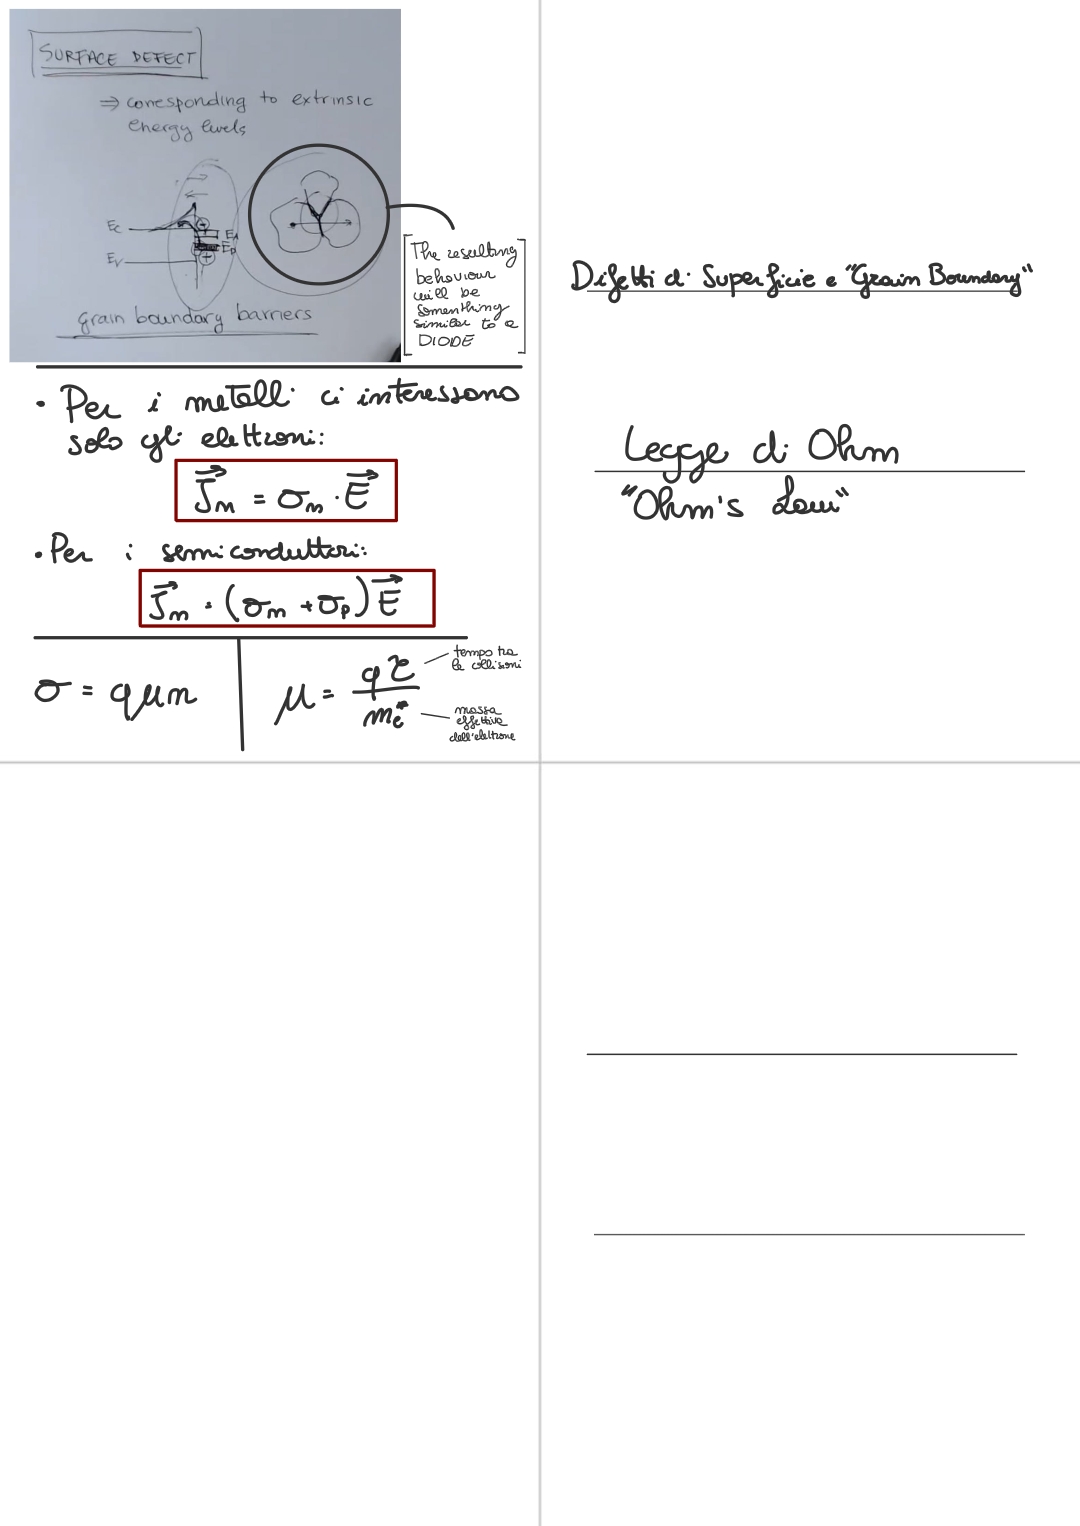 SURFACE DEFECT
⇒ corresponding to extrinsic
energy levels
Ec
EA
ED
Ev
Grain boundary barriers
The resulting
behaviour
will be
somenthing
similar to a
DIODE
• Per i metalli ci interessano
solo gli elettroni:
J⃗n = σn · E⃗
• Per i semiconduttori:
J⃗n = (σn + σp) E⃗
σ = qμn
μ = qτ / me*
tempo tra
le collisioni
massa
effettiva
dell'elettrone
Difetti di Superficie e "Grain Boundary"
Legge di Ohm
"Ohm's Law"